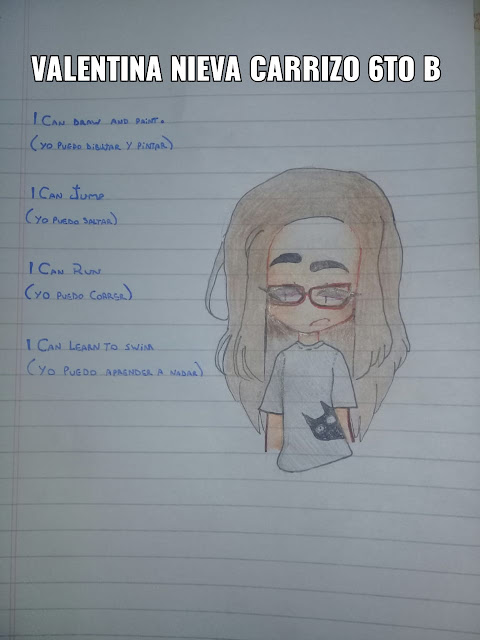 VALENTINA NIEVA CARRIZO 6TO B
I CAN DRAW AND PAINT.
(YO PUEDO DIBUJAR Y PINTAR)
I CAN JUMP
(YO PUEDO SALTAR)
I CAN RUN
(YO PUEDO CORRER)
I CAN LEARN TO SWIM
(YO PUEDO APRENDER A NADAR)